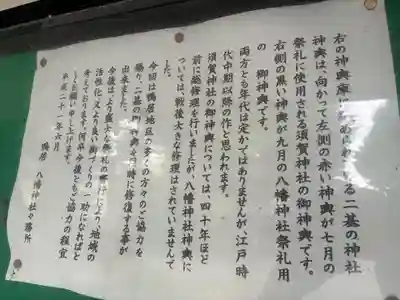 右の神輿庫に納められている二基の神社
神輿は、向かって左側の赤い神輿が七月の
祭礼に使用される須賀神社の御神輿です。
右側の黒い神輿が九月の八幡神社祭礼用
の　御神輿です。
両方とも年代は定かではありませんが、江戸時
代中期以降の作と思われます。
須賀神社の御神輿については四十年ほど
前に総修理を行いましたが、八幡神社神輿に
ついては、戦後大きな修理はされていませんで
した。
今回は鴨居地区の多くの方々のご協力を
賜り、二基の御神輿を同時に修復する事が
出来ました。
今後は、より盛大な祭礼の斎行により、地域の
活性化、又より良い街づくりの一助になればと
考えております。何卒今後ともご協力の程宜
しくお願い申し上げます。
平成二十一年六月
鴨居　八幡神社々務所